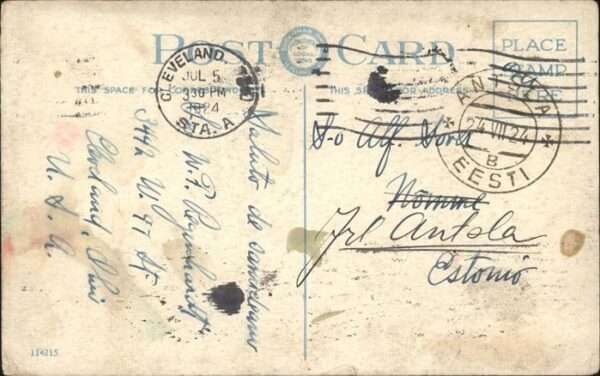 POST CARD
THIS SPACE FOR CORRESPONDENCE
THIS SPACE FOR ADDRESS
PLACE
STAMP
HERE
CLEVELAND,
JUL 5
3 30 PM
1924
STA. A
ANTSLA
24 VII 24
B
EESTI
Saluto de samideano
W. P.
3442 W. 97 St.
Cleveland, Ohio
U. S. A.
S-o Alf.
Nõmme
Antsla
Estonio
114215